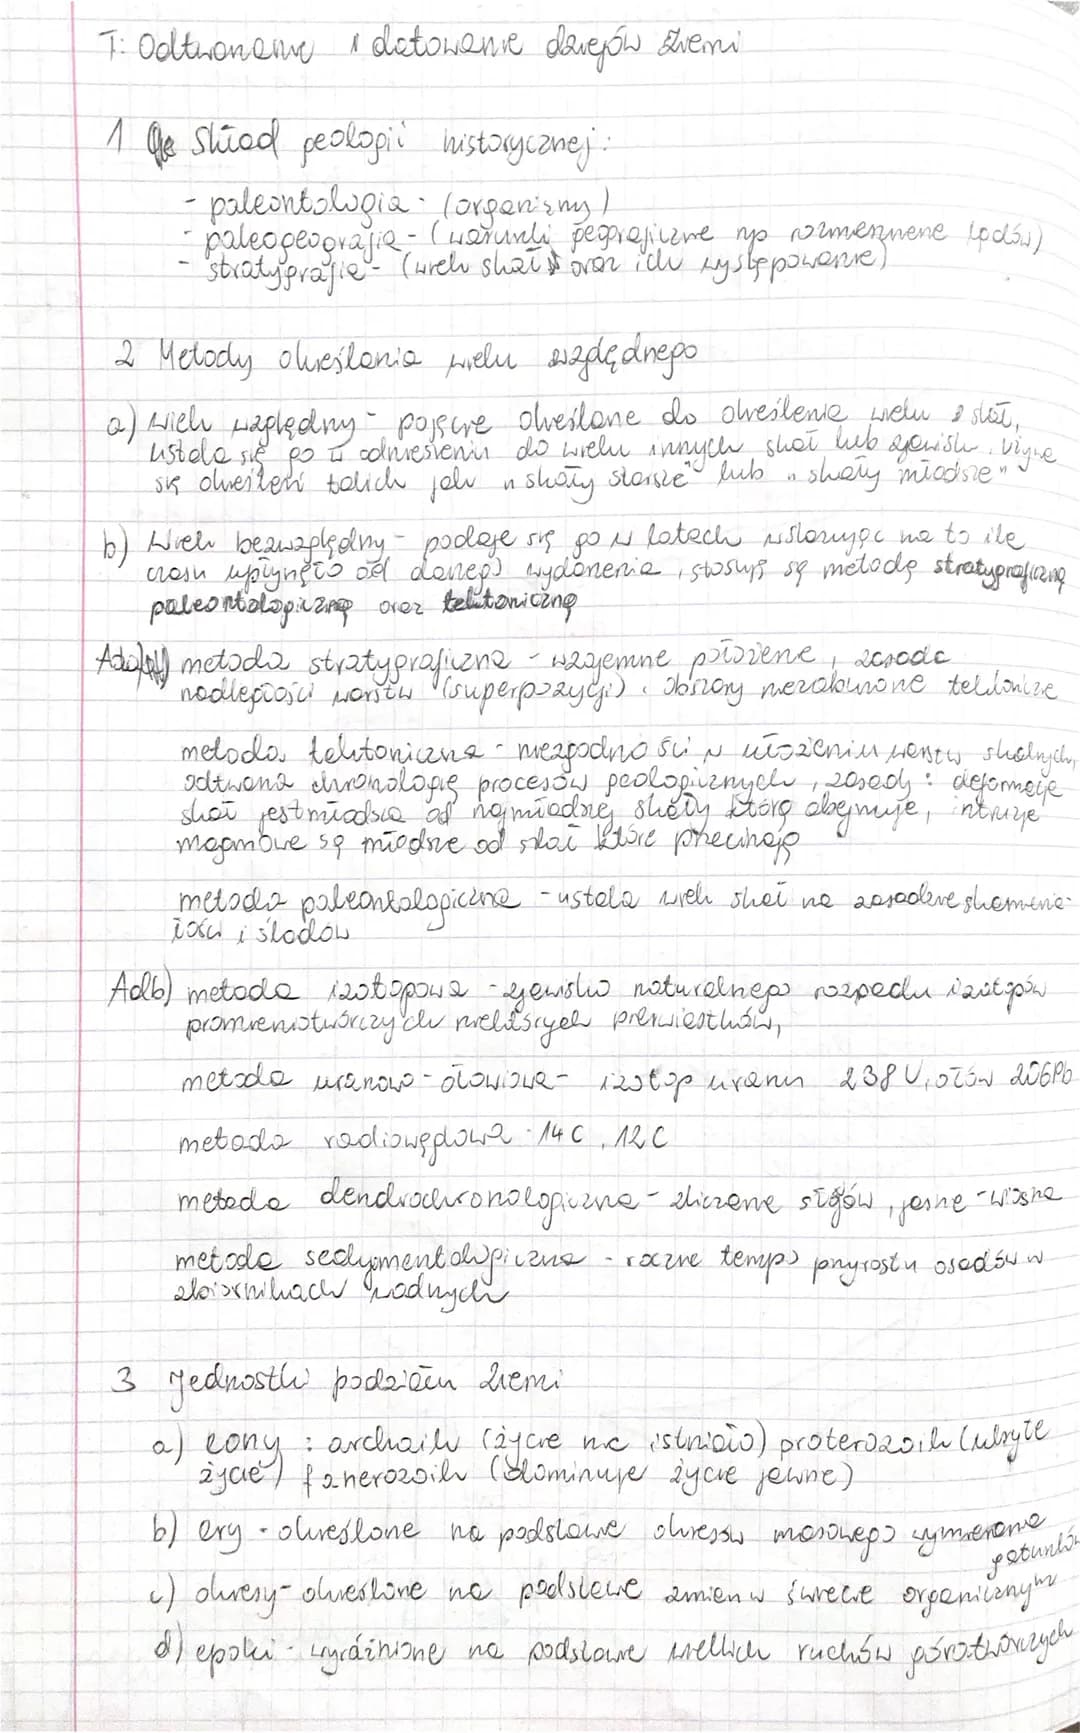 T: Odtwarzanie i datowanie dziejów Ziemi
1 Skład geologii historycznej:
- paleontologia - (organizmy)
- paleogeografia - (warunki geograficzne np rozmieszczenie lądów)
- stratygrafia - (wiek skał oraz ich występowanie)
2 Metody określania wieku względnego
a) wiek względny - pojęcie określane do określenia wieku skał,
ustala się go w odniesieniu do wieku innych skał lub zjawisk. Używa
się określeń takich jak "skały starsze" lub "skały młodsze"
b) Wiek bezwzględny - podaje się go w latach wskazując na to ile
czasu upłynęło od danego wydarzenia, stosuję się metodę stratygraficzną
paleontologiczną oraz tektoniczną
Ada) metoda stratygraficzna - wzajemne położenie, zasada
nadległości warstw (superpozycji). Obszary niezaburzone tektonicznie
metoda tektoniczna - niezgodności w ułożeniu warstw skalnych,
odtwarza chronologię procesów geologicznych, zasady: deformacje
skał jest młodsza od najmłodszej skały którą obejmuje, intruzje
magmowe są młodsze od skał które przecinają
metoda paleontologiczna - ustala wiek skał na zasadzie skamienia-
łości i śladów
Adb) metoda izotopowa - zjawisko naturalnego rozpadu izotopów
promieniotwórczych niektórych pierwiastków,
metoda uranowo - ołowiowa - izotop uranu 238 U, ołów 206Pb
metoda radiowęglowa - 14 C, 12 C
metoda dendrochronologiczna - zliczanie słojów, jasne - wiosna
metoda sedymentologiczna - roczne tempo przyrostu osadów w
zbiornikach wodnych
3 Jednostki podziału Ziemi
a) eony : archaik (życie nie istniało) proterozoik (ukryte
życie) fanerozoik (dominuje życie jawne)
b) ery - określone na podstawie okresów masowego wymierania
gatunków
c) okresy - określone na podstawie zmian w świecie organicznym
d) epoki - wyróżnione na podstawie wielkich ruchów górotwórczych